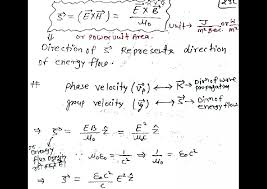 S⃗ = (E⃗×H⃗) = E⃗ × B⃗ / μ₀ unit → J/m² sec. or
or Power unit Area.
Direction of S⃗ Represents direction
of energy flow.
phase velocity (v⃗p) ↔ K⃗ → Dirn of wave propagation
group velocity ↔ S⃗ → Dirn of energy flow
⇒ S⃗ = EB/μ₀ ẑ = E²/μ₀c ẑ
Energy
∵ μ₀ε₀ = 1/c² ⇒ 1/μ₀ = ε₀c²
⇒ S⃗ = ε₀c²/c E² ẑ